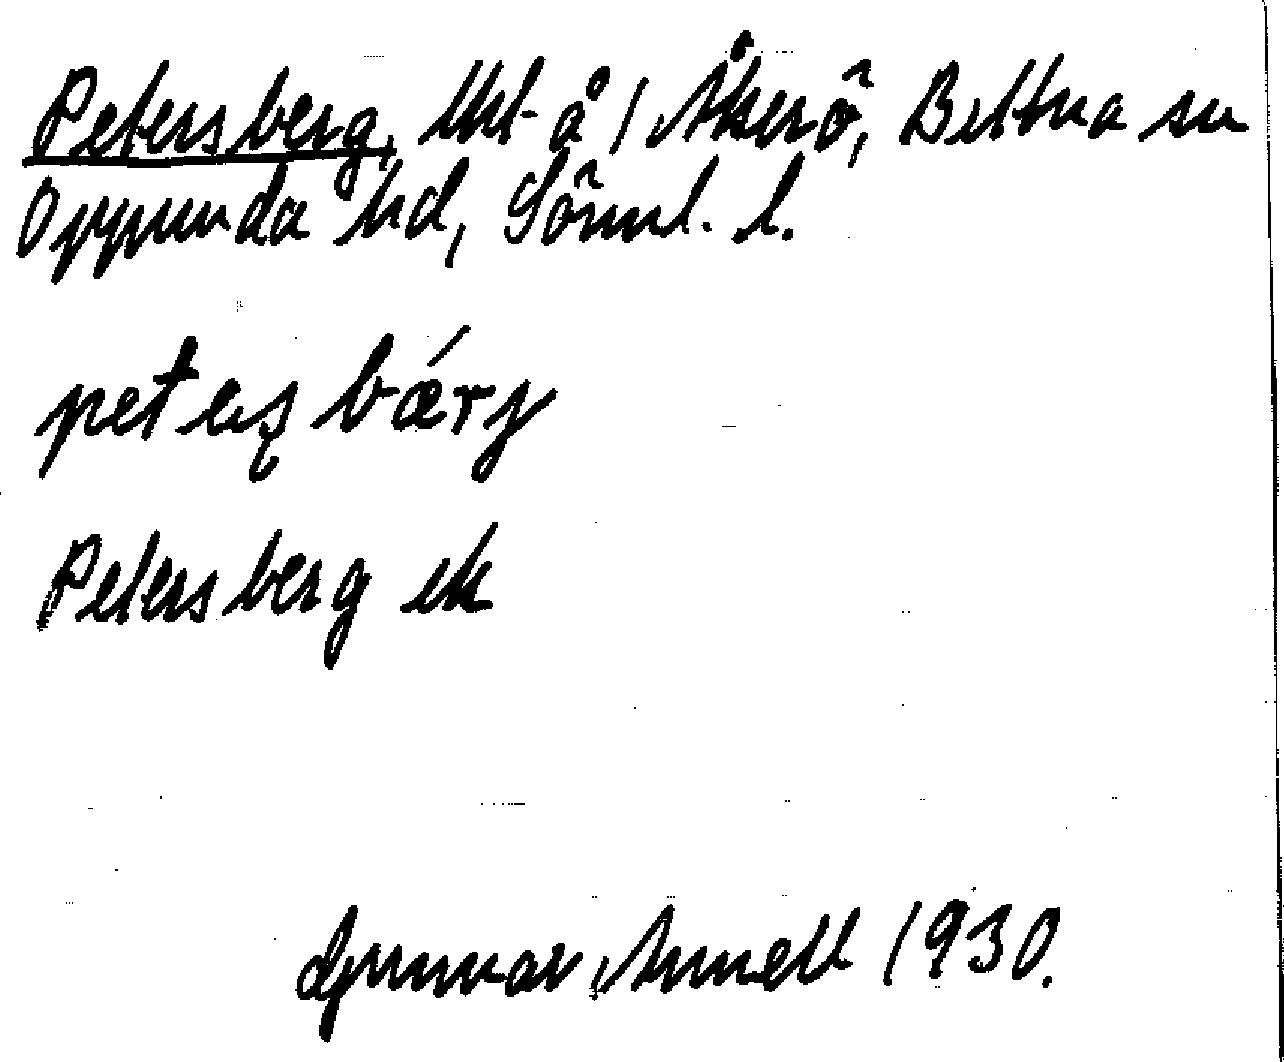 Petersberg, lht å 1 Åkerö, Bettna sn
Oppunda hd, Söml. l.
petaʂ bǽrj
Petersberg ek
Gunnar Annell 1930.